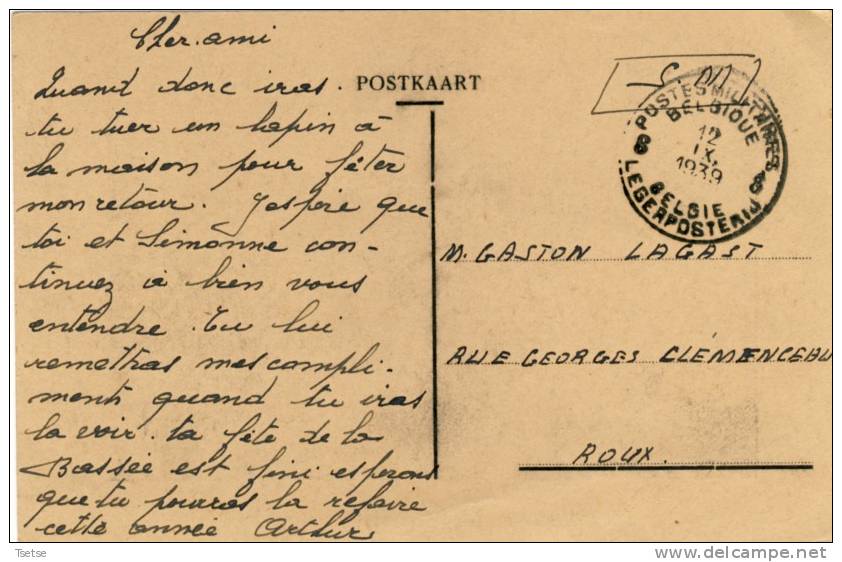 Cher. ami
Quand donc iras.
tu tuer un lapin à
la maison pour fêter
mon retour. J'espère que
toi et Simonne con-
tinuez à bien vous
entendre. Tu lui
remettras mes compli-
ments quand tu iras
la voir. ta fête de la
Bassée est fini esperons
que tu pourras la refaire
cette année Arthur
POSTKAART
S. M
POSTES MILITAIRES
BELGIQUE
12
IX.
1939
BELGIE
LEGERPOSTERIJ
M. GASTON LAGAST
RUE GEORGES CLÉMENCEAU
ROUX.
Tsetse
http://www.delcampe.net